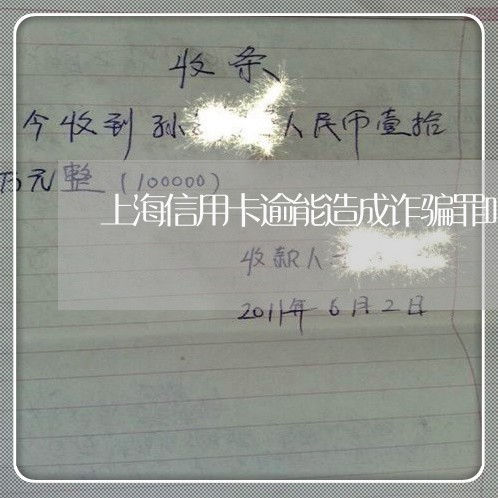 收条
今收到孙 人民币壹拾
万元整(100000)
上海信用卡逾能造成诈骗罪吗
收款人
2011年6月2日